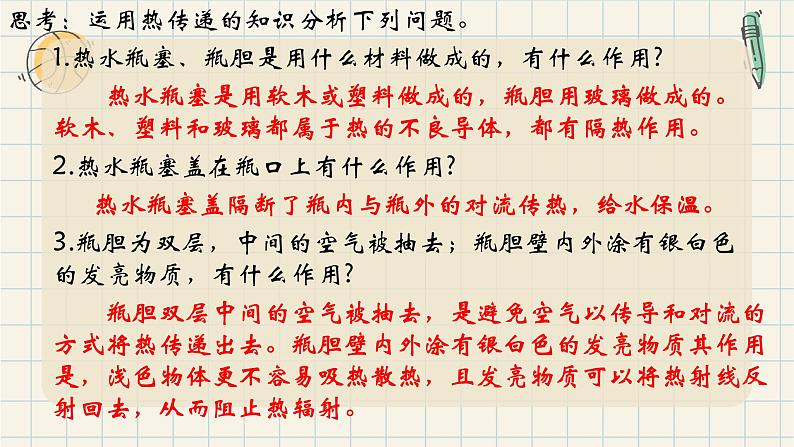 思考：运用热传递的知识分析下列问题。
1.热水瓶塞、瓶胆是用什么材料做成的，有什么作用?
热水瓶塞是用软木或塑料做成的，瓶胆用玻璃做成的。
软木、塑料和玻璃都属于热的不良导体，都有隔热作用。
2.热水瓶塞盖在瓶口上有什么作用?
热水瓶塞盖隔断了瓶内与瓶外的对流传热，给水保温。
3.瓶胆为双层，中间的空气被抽去；瓶胆壁内外涂有银白色
的发亮物质，有什么作用?
瓶胆双层中间的空气被抽去，是避免空气以传导和对流的
方式将热传递出去。瓶胆壁内外涂有银白色的发亮物质其作用
是，浅色物体更不容易吸热散热，且发亮物质可以将热射线反
射回去，从而阻止热辐射。